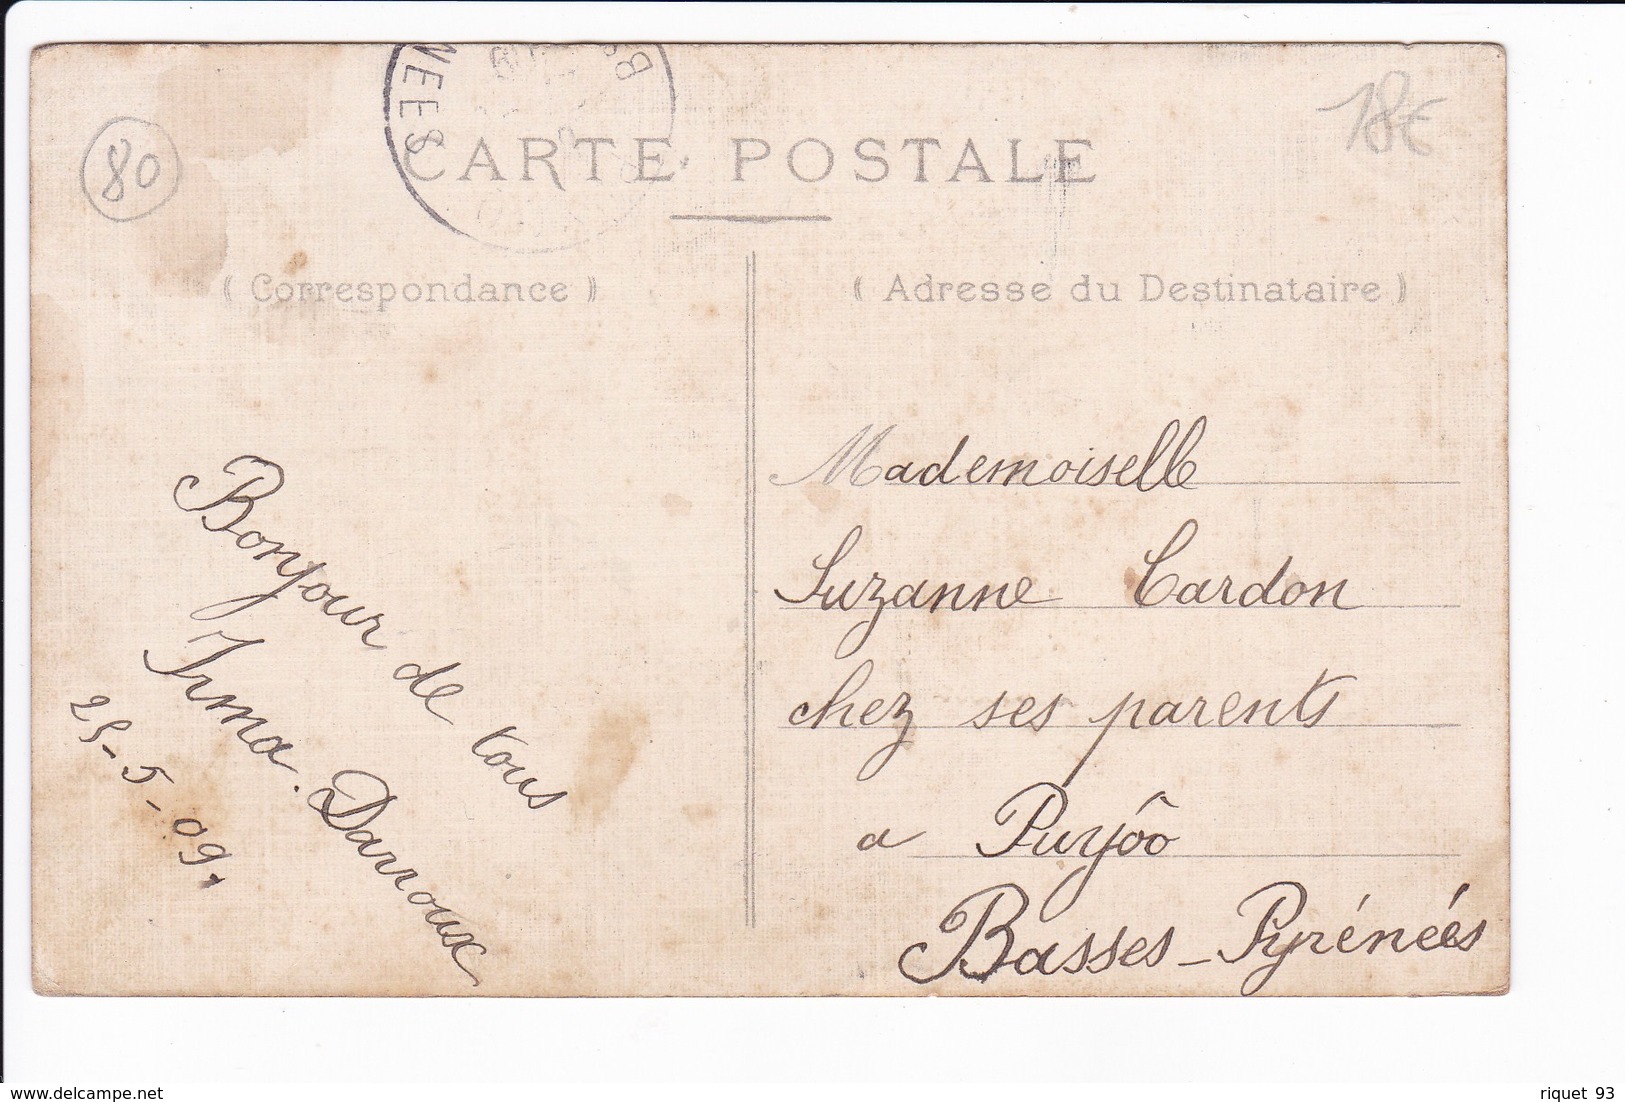 NEES
B
80
18€
CARTE POSTALE
( Correspondance )
( Adresse du Destinataire )
Bonjour de tous
Irma. Darroux
25-5-09.
Mademoiselle
Suzanne Cardon
chez ses parents
a Puyôo
Basses-Pyrénées
riquet 93